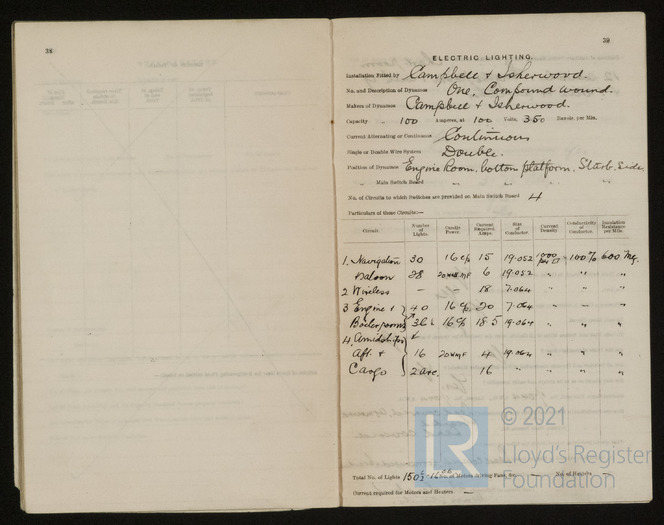 38
39
ELECTRIC LIGHTING.
Installation Fitted by Campbell & Isherwood.
No. and Description of Dynamos One, Compound Wound.
Makers of Dynamos Campbell & Isherwood.
Capacity 100 Amperes, at 100 Volts, 350 Revols. per Min.
Current Alternating or Continuous Continuous
Single or Double Wire System Double.
Position of Dynamos Engine Room, bottom platform, Starb. side
„ Main Switch Board „ „ „ „
No. of Circuits to which Switches are provided on Main Switch Board 4
Particulars of these Circuits:—
Circuit. Number of Lights. Candle Power. Current Required. Amps. Size of Conductor. Current Density. Conductivity of Conductor. Insulation Resistance per Mile.
1. Navigation 30 16 c/p 15 19.052 1000 per □" 100% 600 Meg.
Saloon 28 6 19.052 „ „ „
2 Wireless — — 18 7.064 „ „ „
3 Engine & 40 16 c/p 20 7.064 „ — „
Boiler rooms 36 16 c/p 18.5 19.064 „ „ „
4. Amidships
Aft. & 16 4 19.064 „ „ „
Cargo 2 arc. 16 „ „ „
Total No. of Lights 150 No. of Motors driving Fans, &c. — No. of Heaters —
Current required for Motors and Heaters. —
LR
© 2021
Lloyd's Register
Foundation